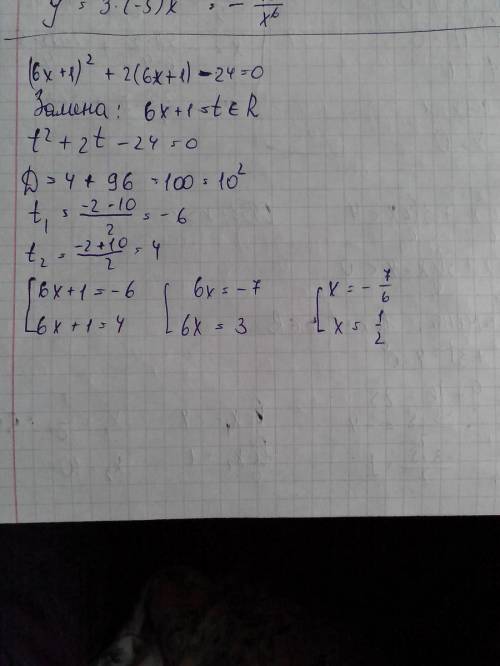 y = 3·(-5)x = -
x⁶
(6x+1)² + 2(6x+1) - 24=0
Замена: 6x+1=t ∈ R
t² + 2t - 24 = 0
D = 4 + 96 = 100 = 10²
t₁ = (-2-10)/2 = -6
t₂ = (-2+10)/2 = 4
[6x+1 = -6 [6x = -7 [x = -7/6
6x+1 = 4 6x = 3 x = 1/2